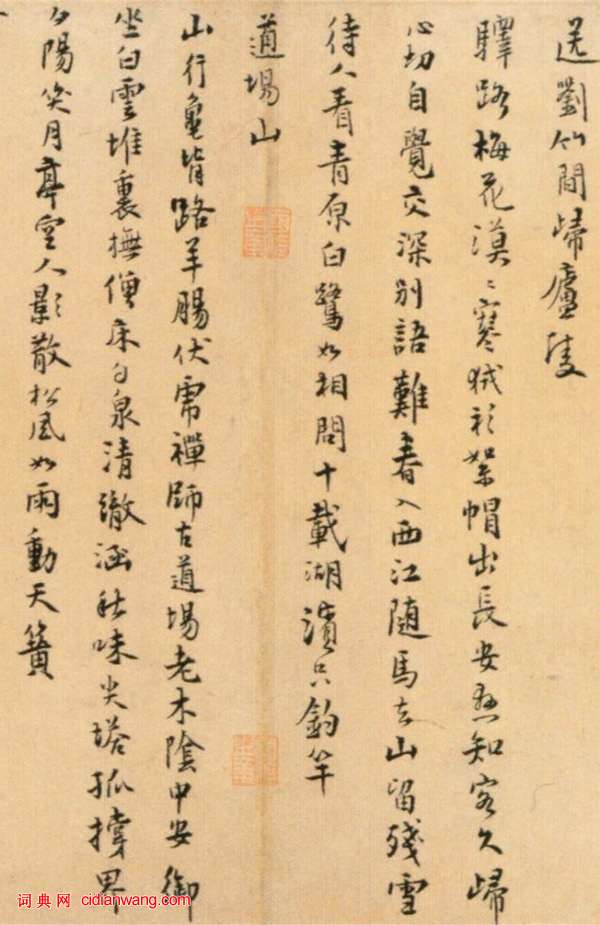 送劉竹間歸廬陵
驛路梅花漠〻寒狨衫絮帽出長安懸知客久歸
心切自覺交深別語難春入西江隨馬去山留殘雪
待人看青原白鷺如相問十載湖濱只釣竿
道場山
山行龜背路羊腸伏虎禪師古道場老木陰中安御
坐白雲堆裏撫僧床白泉清徹涵秋味尖塔孤撐界
夕陽笑月亭空人影散松風如雨動天簧
词典网 cidianwang.com